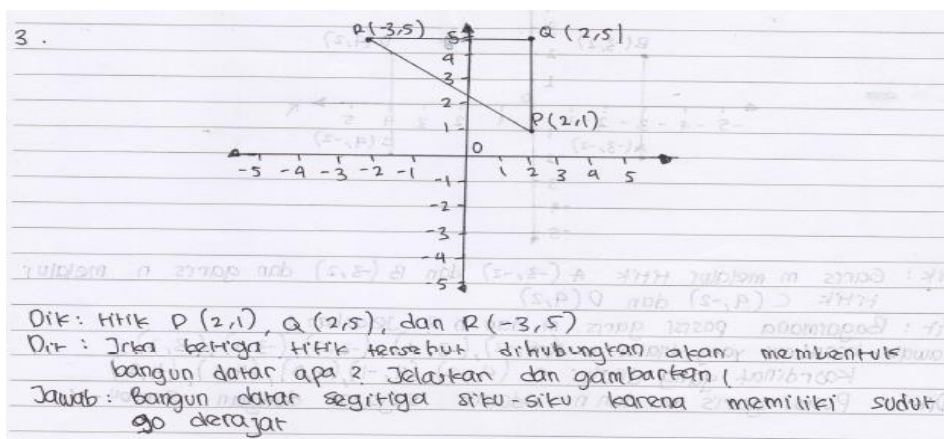 3.
R(-3,5)
5
Q(2,5)
4
3
2
P(2,1)
1
0
-5 -4 -3 -2 -1 1 2 3 4 5
-1
-2
-3
-4
-5
Dik : titik P (2,1), Q (2,5), dan R(-3,5)
Dit : Jika ketiga titik tersebut dihubungkan akan membentuk
bangun datar apa? Jelaskan dan gambarkan!
Jawab : Bangun datar segitiga siku-siku karena memiliki sudut
90 derajat